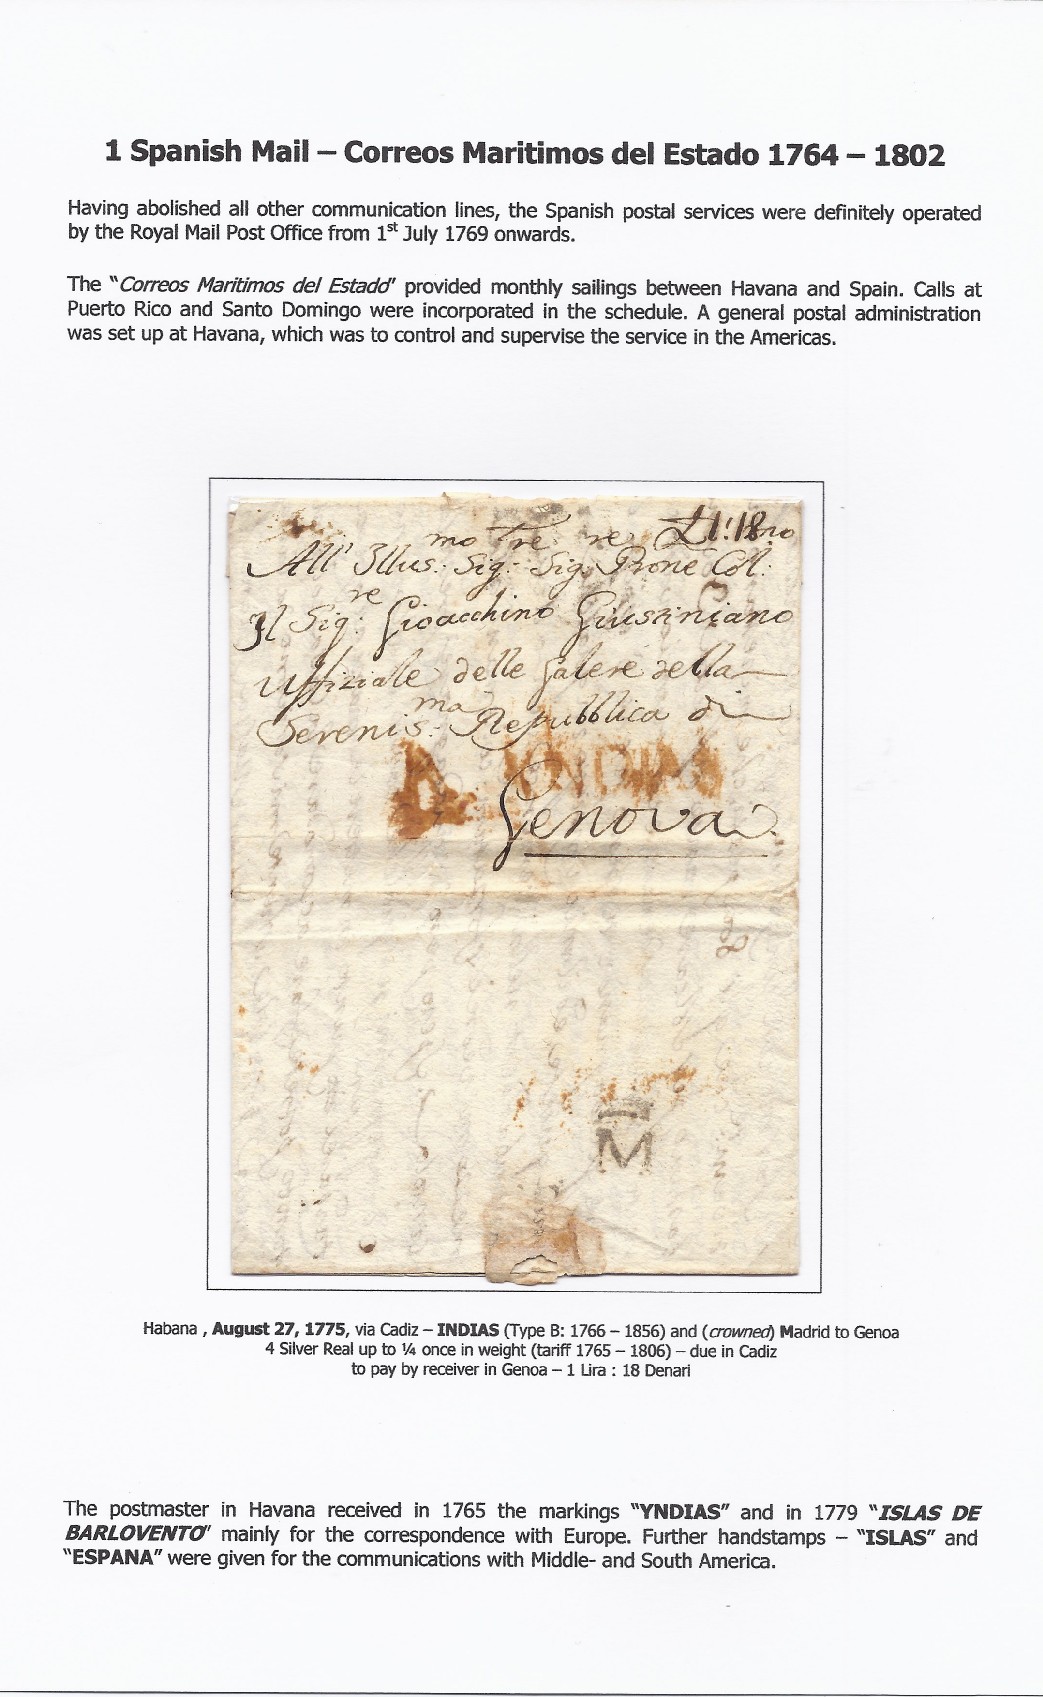 1 Spanish Mail – Correos Maritimos del Estado 1764 – 1802
Having abolished all other communication lines, the Spanish postal services were definitely operated
by the Royal Mail Post Office from 1st July 1769 onwards.
The "Correos Maritimos del Estado" provided monthly sailings between Havana and Spain. Calls at
Puerto Rico and Santo Domingo were incorporated in the schedule. A general postal administration
was set up at Havana, which was to control and supervise the service in the Americas.
All' Illus:mo Sig:re Sig:re Prone Col:mo
Il Sig:re Gioacchino Giustiniano
Uffiziale delle Galere della
Serenis:ma Repubblica di
YNDIAS
Genova
M
Habana , August 27, 1775, via Cadiz – INDIAS (Type B: 1766 – 1856) and (crowned) Madrid to Genoa
4 Silver Real up to ¼ once in weight (tariff 1765 – 1806) – due in Cadiz
to pay by receiver in Genoa – 1 Lira : 18 Denari
The postmaster in Havana received in 1765 the markings "YNDIAS" and in 1779 "ISLAS DE
BARLOVENTO" mainly for the correspondence with Europe. Further handstamps – "ISLAS" and
"ESPANA" were given for the communications with Middle- and South America.